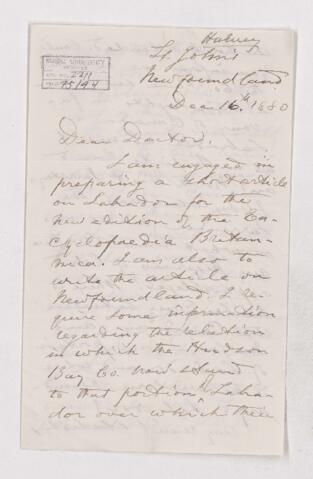 Harvey
St John's
Newfoundland
Dec 16th 1880
Dear Doctor,
I am engaged in
preparing a short article
on Labrador for the
new edition of the En-
cyclopaedia Britan-
nica. I am also to
write the article on
Newfoundland. I re-
quire some information
regarding the relation
in which the Hudson
Bay Co. now stand
to that portion Labra-
dor over which their